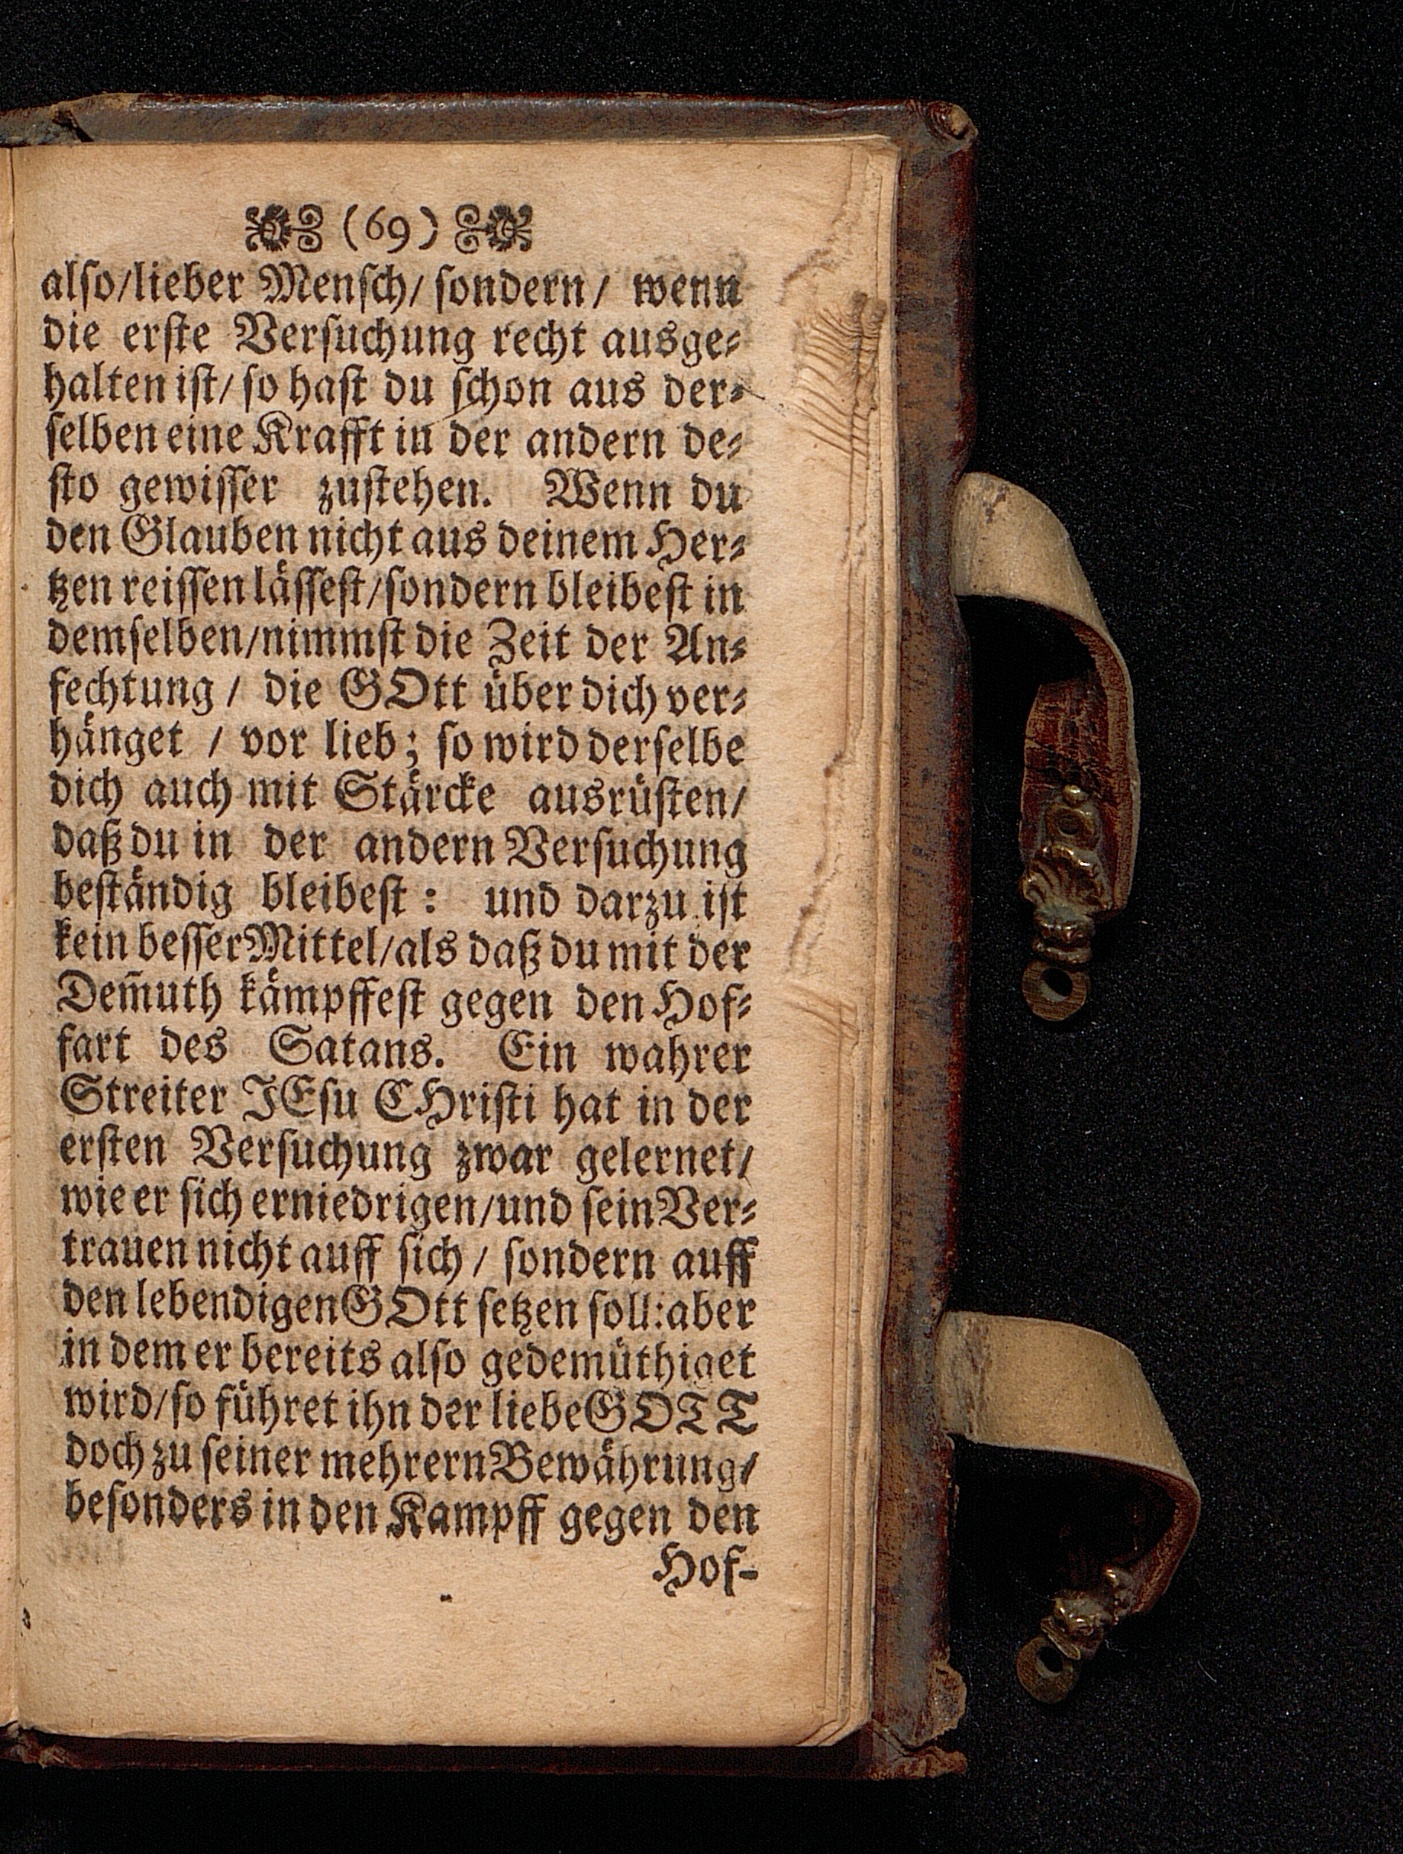 (69)
also/lieber Mensch/ sondern/ wenn
die erste Versuchung recht ausge-
halten ist/ so hast du schon aus der-
selben eine Krafft in der andern de-
sto gewisser zustehen. Wenn du
den Glauben nicht aus deinem Her-
tzen reissen lässest/sondern bleibest in
demselben/nimmst die Zeit der An-
fechtung / die GOtt über dich ver-
hänget / vor lieb; so wird derselbe
dich auch mit Stärcke ausrüsten/
daß du in der andern Versuchung
beständig bleibest: und darzu ist
kein besser Mittel/als daß du mit der
Dem̃uth kämpffest gegen den Hof-
fart des Satans. Ein wahrer
Streiter JEsu CHristi hat in der
ersten Versuchung zwar gelernet/
wie er sich erniedrigen/und sein Ver-
trauen nicht auff sich / sondern auff
den lebendigen GOtt setzen soll: aber
in dem er bereits also gedemüthiget
wird/so führet ihn der liebe GOTT
doch zu seiner mehrern Bewährung/
besonders in den Kampff gegen den
Hof-